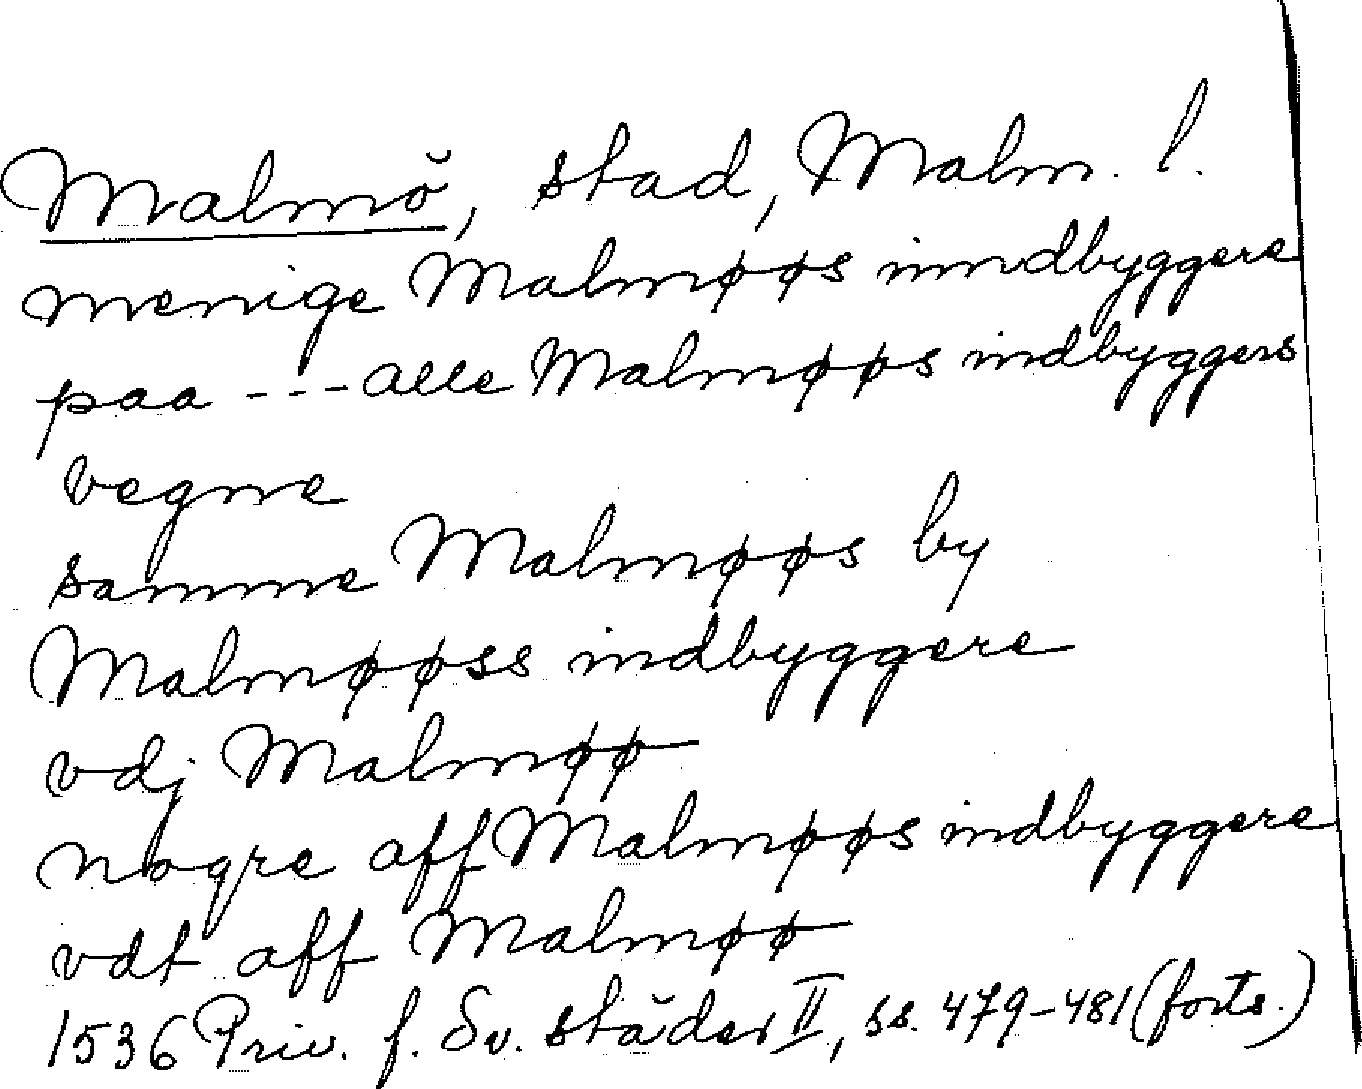 Malmö, stad, Malm. l.
menige Malmøøs inndbyggere
paa --- alle Malmøøs indbyggers
vegne
samme Malmøøs by
Malmøøss indbyggere
vdj Malmøø
nogre aff Malmøøs indbyggere
vdt aff Malmøø
1536 Priv. f. Sv. städer II, ss. 479-481 (forts.)